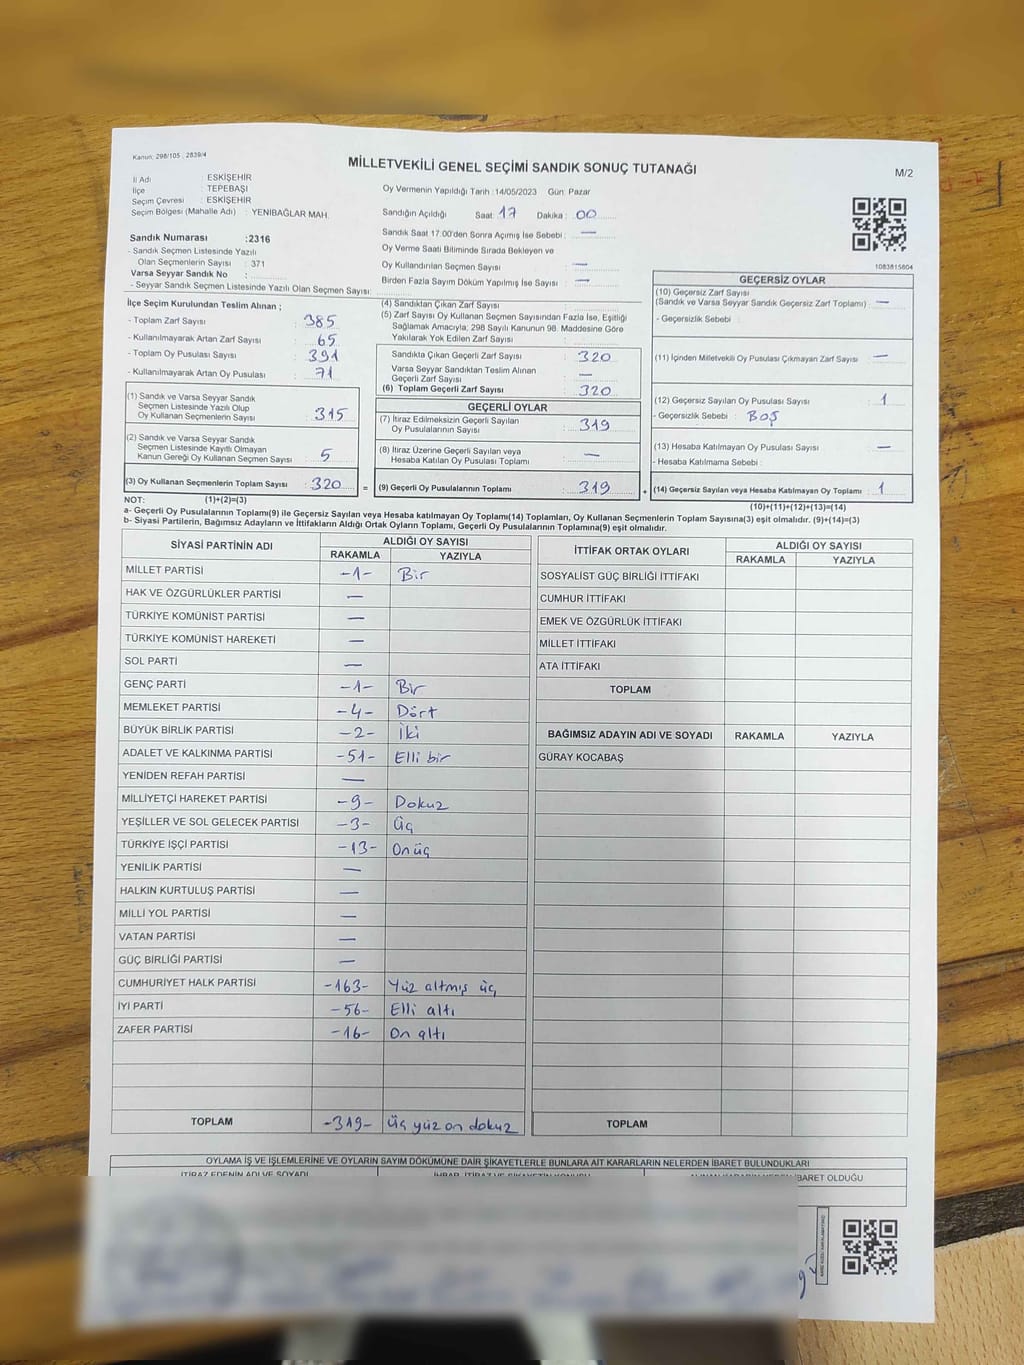 Kanun: 298/105 , 2839/4
MİLLETVEKİLİ GENEL SEÇİMİ SANDIK SONUÇ TUTANAĞI
M/2
İl Adı : ESKİŞEHİR
İlçe : TEPEBAŞI
Seçim Çevresi : ESKİŞEHİR
Seçim Bölgesi (Mahalle Adı) : YENİBAĞLAR MAH.
Sandık Numarası :2316
- Sandık Seçmen Listesinde Yazılı
Olan Seçmenlerin Sayısı : 371
Varsa Seyyar Sandık No :
- Seyyar Sandık Seçmen Listesinde Yazılı Olan Seçmen Sayısı:
Oy Vermenin Yapıldığı Tarih :14/05/2023 Gün: Pazar
Sandığın Açıldığı Saat: 17 Dakika : 00
Sandık Saat 17:00'den Sonra Açımış İse Sebebi : —
Oy Verme Saati Bitiminde Sırada Bekleyen ve
Oy Kullandırılan Seçmen Sayısı : —
Birden Fazla Sayım Döküm Yapılmış İse Sayısı : —
1083815604
İlçe Seçim Kurulundan Teslim Alınan ;
- Toplam Zarf Sayısı : 385
- Kullanılmayarak Artan Zarf Sayısı : 65
- Toplam Oy Pusulası Sayısı : 391
- Kullanılmayarak Artan Oy Pusulası : 71
(1) Sandık ve Varsa Seyyar Sandık
Seçmen Listesinde Yazılı Olup
Oy Kullanan Seçmenlerin Sayısı : 315
(2) Sandık ve Varsa Seyyar Sandık
Seçmen Listesinde Kayıtlı Olmayan
Kanun Gereği Oy Kullanan Seçmen Sayısı : 5
(3) Oy Kullanan Seçmenlerin Toplam Sayısı : 320
(4) Sandıktan Çıkan Zarf Sayısı :
(5) Zarf Sayısı Oy Kullanan Seçmen Sayısından Fazla İse, Eşitliği
Sağlamak Amacıyla; 298 Sayılı Kanunun 98. Maddesine Göre
Yakılarak Yok Edilen Zarf Sayısı :
Sandıkta Çıkan Geçerli Zarf Sayısı : 320
Varsa Seyyar Sandıktan Teslim Alınan
Geçerli Zarf Sayısı : —
(6) Toplam Geçerli Zarf Sayısı : 320
GEÇERLİ OYLAR
(7) İtiraz Edilmeksizin Geçerli Sayılan
Oy Pusulalarının Sayısı : 319
(8) İtiraz Üzerine Geçerli Sayılan veya
Hesaba Katılan Oy Pusulası Toplamı : —
= (9) Geçerli Oy Pusulalarının Toplamı : 319
GEÇERSİZ OYLAR
(10) Geçersiz Zarf Sayısı
(Sandık ve Varsa Seyyar Sandık Geçersiz Zarf Toplamı) : —
- Geçersizlik Sebebi :
(11) İçinden Milletvekili Oy Pusulası Çıkmayan Zarf Sayısı : —
(12) Geçersiz Sayılan Oy Pusulası Sayısı : 1
- Geçersizlik Sebebi : BOŞ
(13) Hesaba Katılmayan Oy Pusulası Sayısı : —
- Hesaba Katılmama Sebebi :
+ (14) Geçersiz Sayılan veya Hesaba Katılmayan Oy Toplamı : 1
NOT: (1)+(2)=(3)
(10)+(11)+(12)+(13)=(14)
a- Geçerli Oy Pusulalarının Toplamı(9) ile Geçersiz Sayılan veya Hesaba Katılmayan Oy Toplamı(14) Toplamları, Oy Kullanan Seçmenlerin Toplam Sayısına(3) eşit olmalıdır. (9)+(14)=(3)
b- Siyasi Partilerin, Bağımsız Adayların ve İttifakların Aldığı Ortak Oyların Toplamı, Geçerli Oy Pusulalarının Toplamına(9) eşit olmalıdır.
SİYASİ PARTİNİN ADI ALDIĞI OY SAYISI
RAKAMLA YAZIYLA
MİLLET PARTİSİ -1- Bir
HAK VE ÖZGÜRLÜKLER PARTİSİ —
TÜRKİYE KOMÜNİST PARTİSİ —
TÜRKİYE KOMÜNİST HAREKETİ —
SOL PARTİ —
GENÇ PARTİ -1- Bir
MEMLEKET PARTİSİ -4- Dört
BÜYÜK BİRLİK PARTİSİ -2- İki
ADALET VE KALKINMA PARTİSİ -51- Elli bir
YENİDEN REFAH PARTİSİ —
MİLLİYETÇİ HAREKET PARTİSİ -9- Dokuz
YEŞİLLER VE SOL GELECEK PARTİSİ -3- Üç
TÜRKİYE İŞÇİ PARTİSİ -13- On üç
YENİLİK PARTİSİ —
HALKIN KURTULUŞ PARTİSİ —
MİLLİ YOL PARTİSİ —
VATAN PARTİSİ —
GÜÇ BİRLİĞİ PARTİSİ —
CUMHURİYET HALK PARTİSİ -163- Yüz altmış üç
İYİ PARTİ -56- Elli altı
ZAFER PARTİSİ -16- On altı
TOPLAM -319- Üç yüz on dokuz
İTTİFAK ORTAK OYLARI ALDIĞI OY SAYISI
RAKAMLA YAZIYLA
SOSYALİST GÜÇ BİRLİĞİ İTTİFAKI
CUMHUR İTTİFAKI
EMEK VE ÖZGÜRLÜK İTTİFAKI
MİLLET İTTİFAKI
ATA İTTİFAKI
TOPLAM
BAĞIMSIZ ADAYIN ADI VE SOYADI RAKAMLA YAZIYLA
GÜRAY KOCABAŞ
TOPLAM
OYLAMA İŞ VE İŞLEMLERİNE VE OYLARIN SAYIM DÖKÜMÜNE DAİR ŞİKAYETLERLE BUNLARA AİT KARARLARIN NELERDEN İBARET BULUNDUKLARI
İTİRAZ EDENİN ADI VE SOYADI
İBARET OLDUĞU